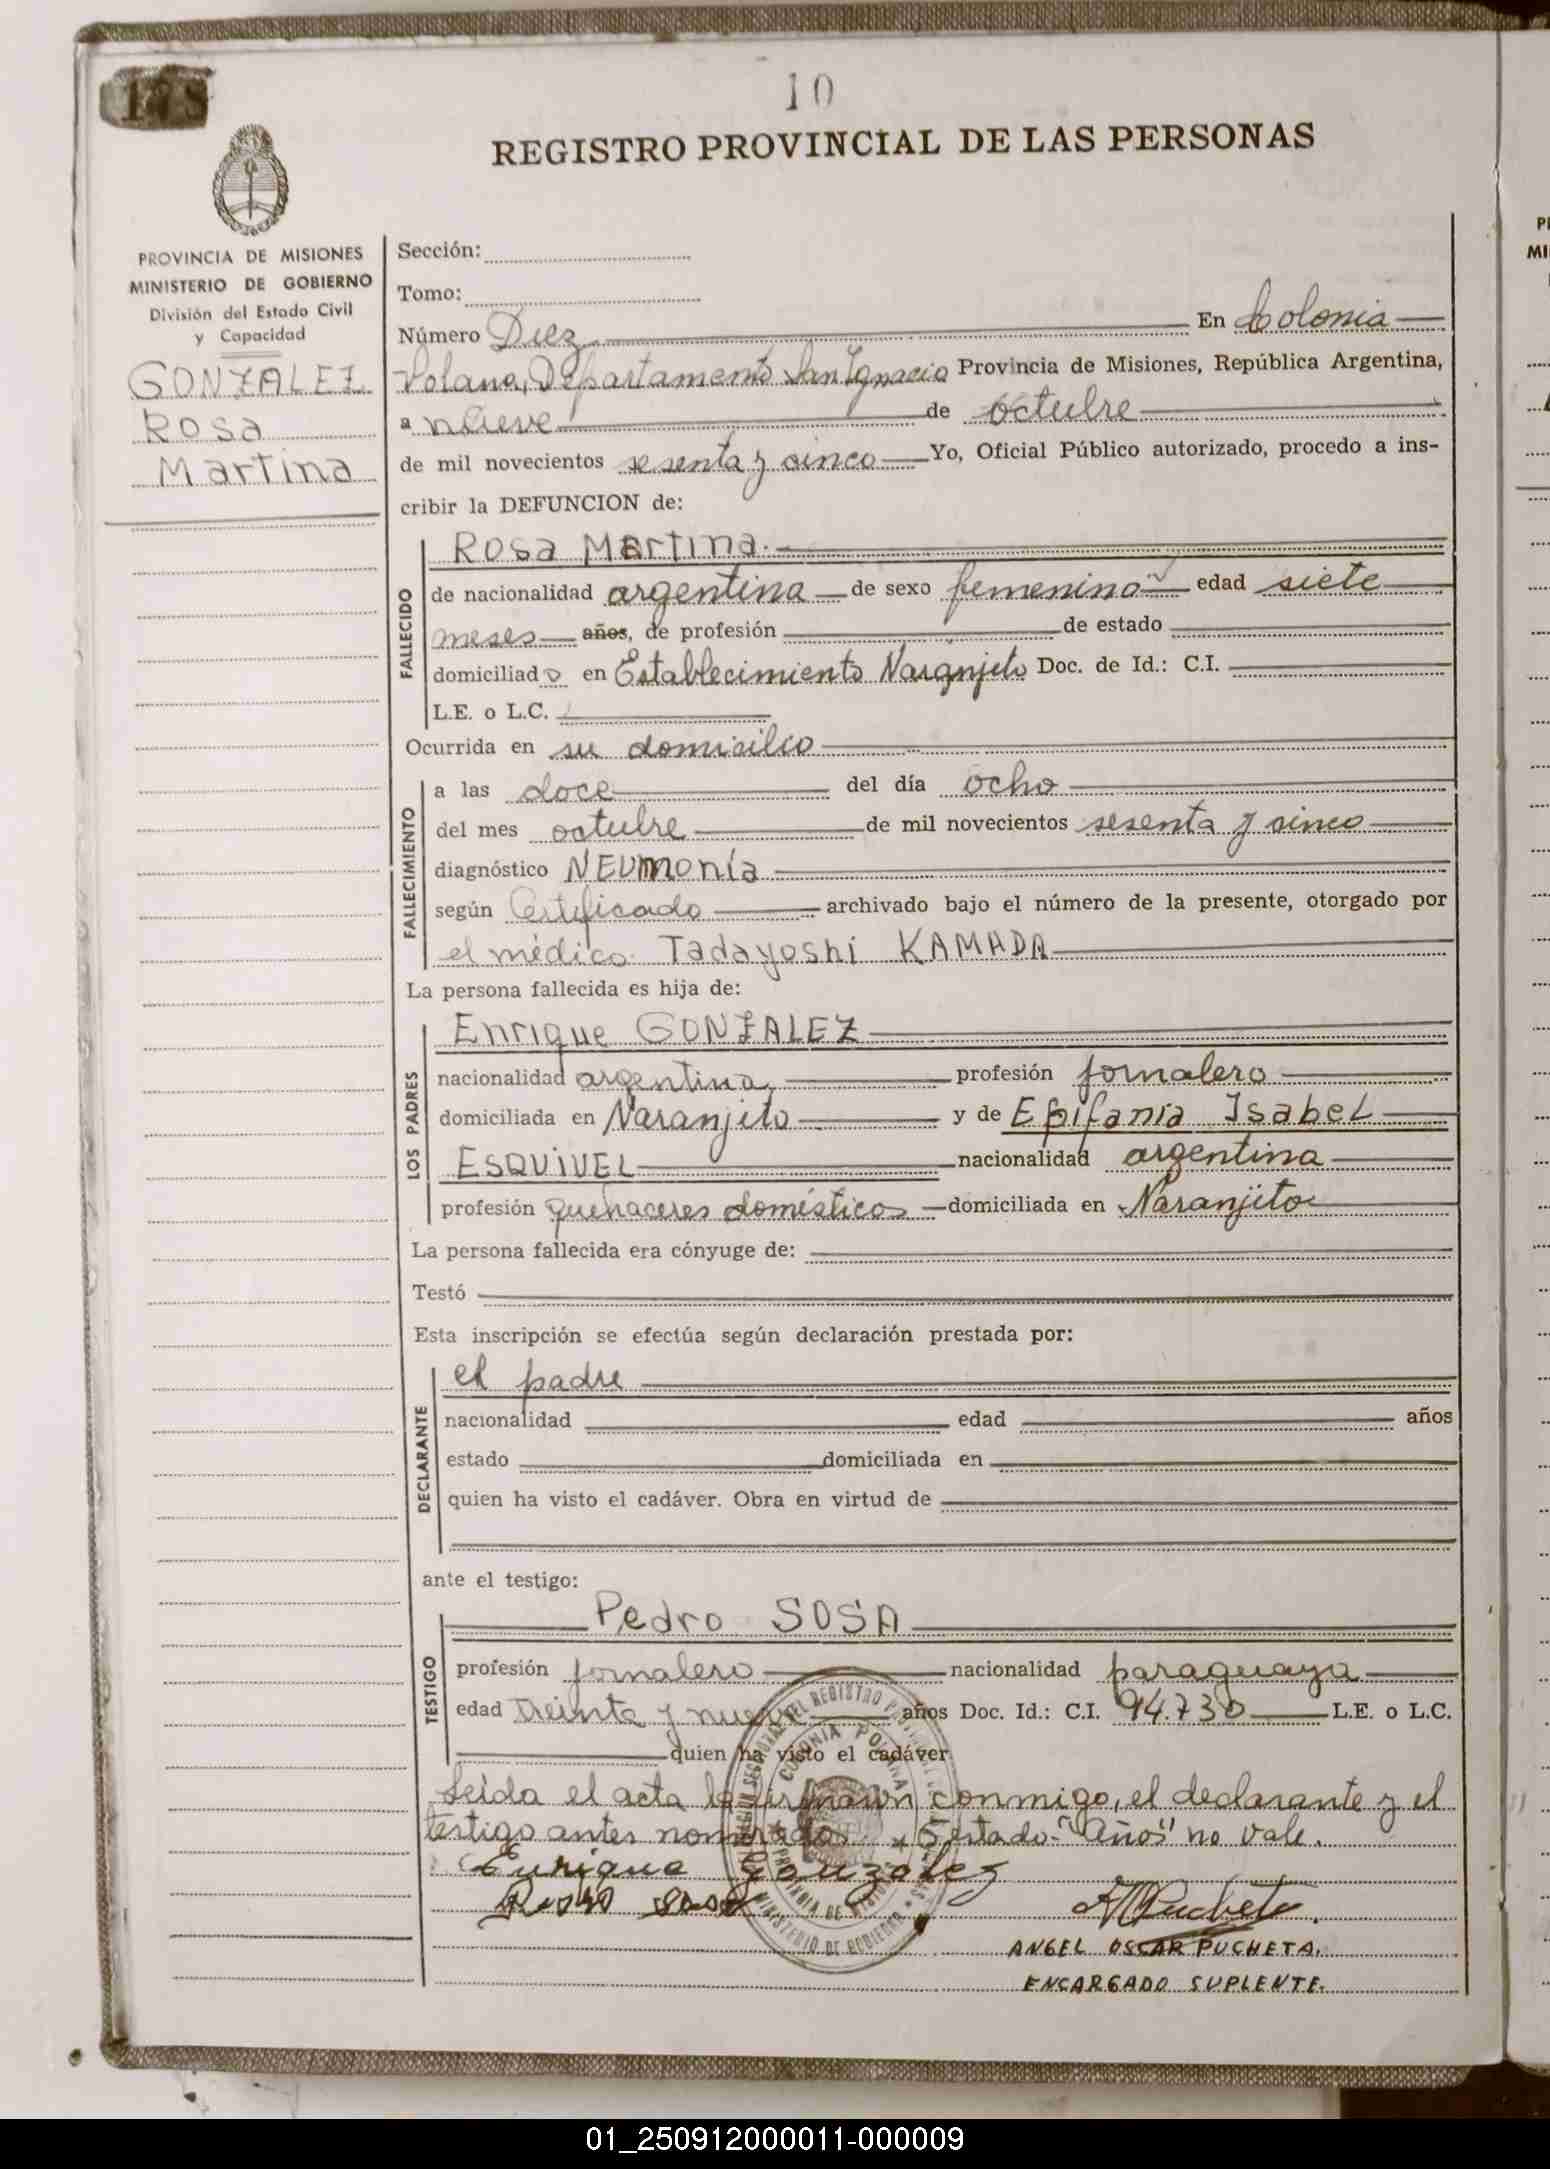 178
10
REGISTRO PROVINCIAL DE LAS PERSONAS
PROVINCIA DE MISIONES
MINISTERIO DE GOBIERNO
División del Estado Civil
y Capacidad
GONZALEZ
Rosa
Martina
Sección:
Tomo:
Número Diez En Colonia
Polana, Departamento San Ignacio Provincia de Misiones, República Argentina,
a nueve de octubre
de mil novecientos sesenta y cinco Yo, Oficial Público autorizado, procedo a ins-
cribir la DEFUNCION de:
FALLECIDO
Rosa Martina.
de nacionalidad argentina de sexo femenino edad siete
meses años, de profesión de estado
domiciliado en Establecimiento Naranjito Doc. de Id.: C.I.
L.E. o L.C.
Ocurrida en su domicilio
FALLECIMIENTO
a las doce del día ocho
del mes octubre de mil novecientos sesenta y cinco
diagnóstico NEUmonía
según Certificado archivado bajo el número de la presente, otorgado por
el médico Tadayoshi KAMADA
La persona fallecida es hija de:
LOS PADRES
Enrique GONZALEZ
nacionalidad argentina, profesión jornalero
domiciliada en Naranjito y de Epifania Isabel
ESQUIVEL nacionalidad argentina
profesión quehaceres domésticos domiciliada en Naranjito
La persona fallecida era cónyuge de:
Testó
Esta inscripción se efectúa según declaración prestada por:
DECLARANTE
el padre
nacionalidad edad años
estado domiciliada en
quien ha visto el cadáver. Obra en virtud de
ante el testigo:
TESTIGO
Pedro SOSA
profesión jornalero nacionalidad paraguaya
edad Treinta y nueve años Doc. Id.: C.I. 94.730 L.E. o L.C.
quien ha visto el cadáver.
Leida el acta la firman conmigo, el declarante y el
testigo antes nombrados. Testado "años" no vale.
Enrique Gonzalez
Pedro Sosa
COLONIA POLANA
MINISTERIO DE GOBIERNO
PROVINCIA DE MISIONES
AOPucheta.
ANGEL OSCAR PUCHETA.
ENCARGADO SUPLENTE.
01_250912000011-000009